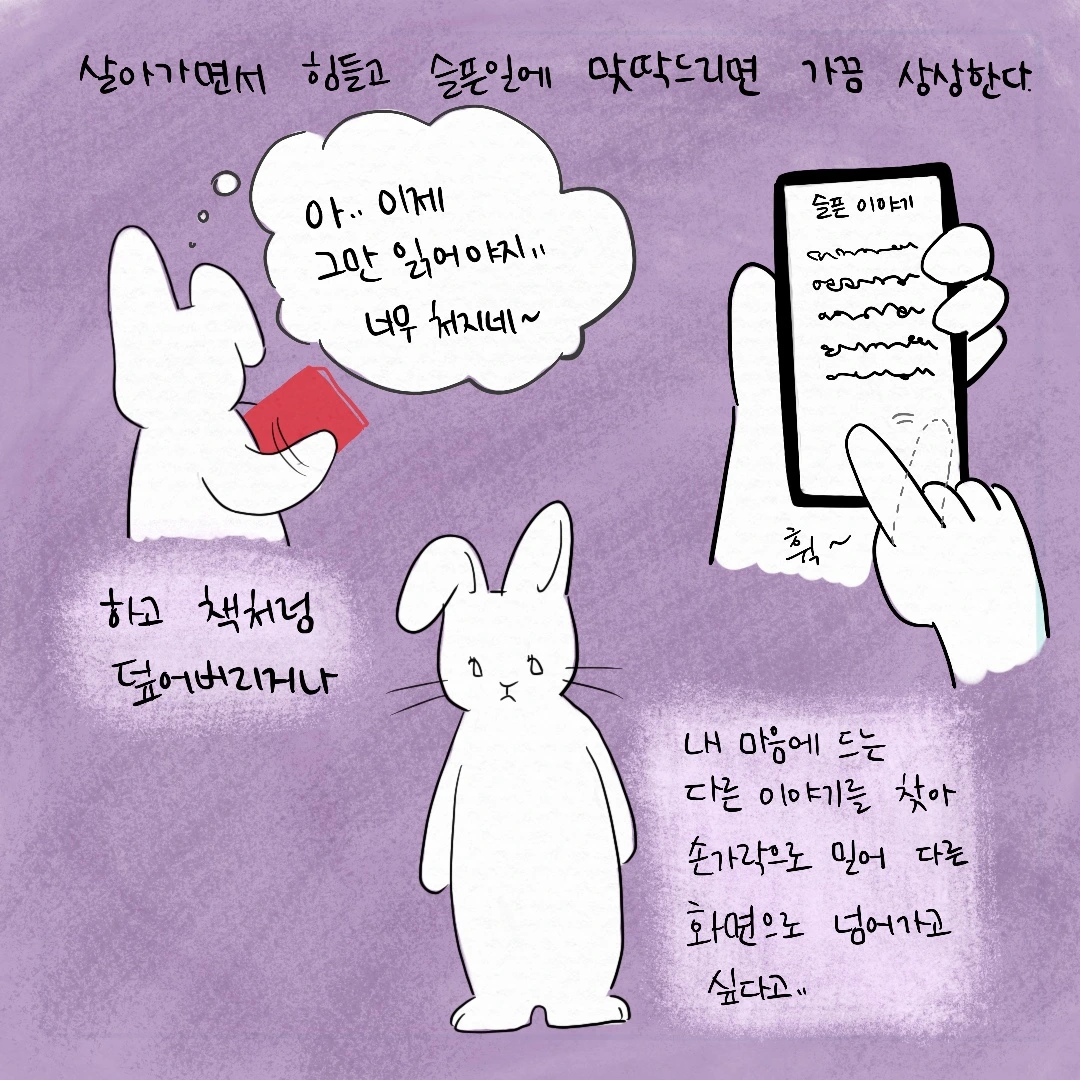 살아가면서 힘들고 슬픈일에 맞딱드리면 가끔 상상한다.
아.. 이제
그만 읽어야지..
너무 처지네~
하고 책처럼
덮어버리거나
슬픈 이야기
휙~
내 마음에 드는
다른 이야기를 찾아
손가락으로 밀어 다른
화면으로 넘어가고
싶다고..